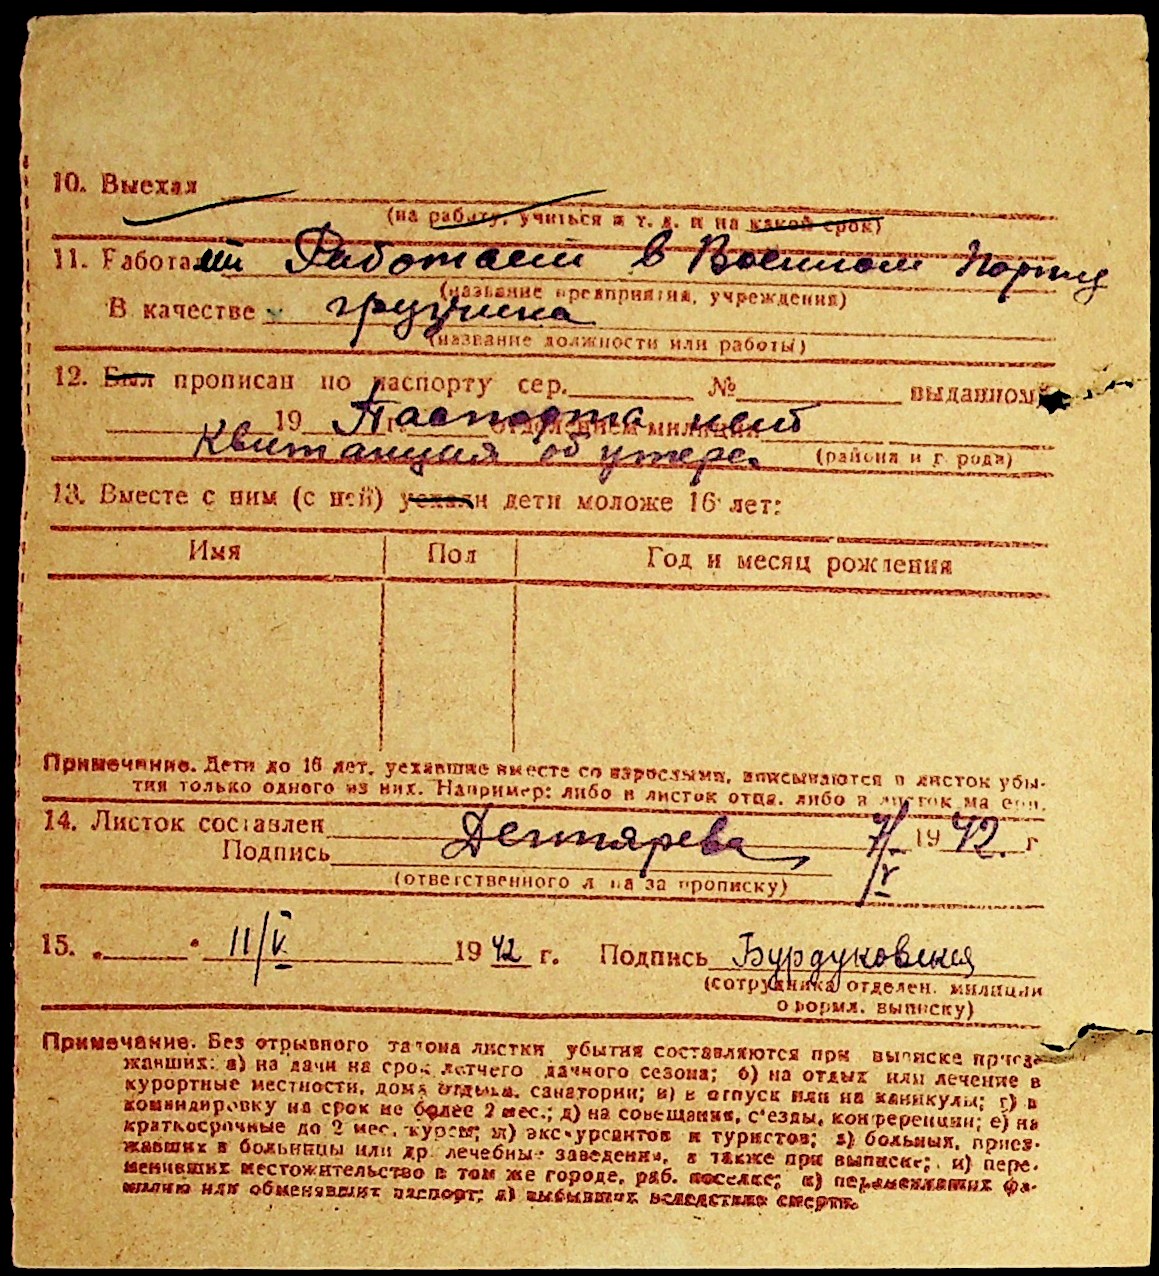 10. Выехал
(на работу, учиться и т. д. и на какой срок)
11. Работает Работает в Военном Порту
(название предприятия, учреждения)
В качестве грузчика
(название должности или работы)
12. Был прописан по паспорту сер. № выданном
19 г. Паспорта нет отделением милиции
Квитанция об утере. (района и города)
13. Вместе с ним (с ней) уехали дети моложе 16 лет:
Имя Пол Год и месяц рождения
Примечание. Дети до 16 лет, уехавшие вместе со взрослыми, вписываются в листок убы-
тия только одного из них. Например: либо в листок отца, либо в листок матери.
14. Листок составлен 7/V 1942. г
Подпись Дегтярева
(ответственного лица за прописку)
15. „ " 11/V 1942 г. Подпись Бурдуковская
(сотрудника отделен. милиции
оформл. выписку)
Примечание. Без отрывного талона листки убытия составляются при выписке приез-
жавших: а) на дачи на срок летнего дачного сезона; б) на отдых или лечение в
курортные местности, дома отдыха, санатории; в) в отпуск или на каникулы; г) в
командировку на срок не более 2 мес.; д) на совещания, с'езды, конференции; е) на
краткосрочные до 2 мес. курсы; ж) экскурсантов и туристов; з) больных, приез-
жавших в больницы или др. лечебные заведения, а также при выписке; и) пере-
менивших местожительство в том же городе, раб. поселке; к) переменивших фа-
милию или обменявших паспорт; л) выбывших вследствие смерти.